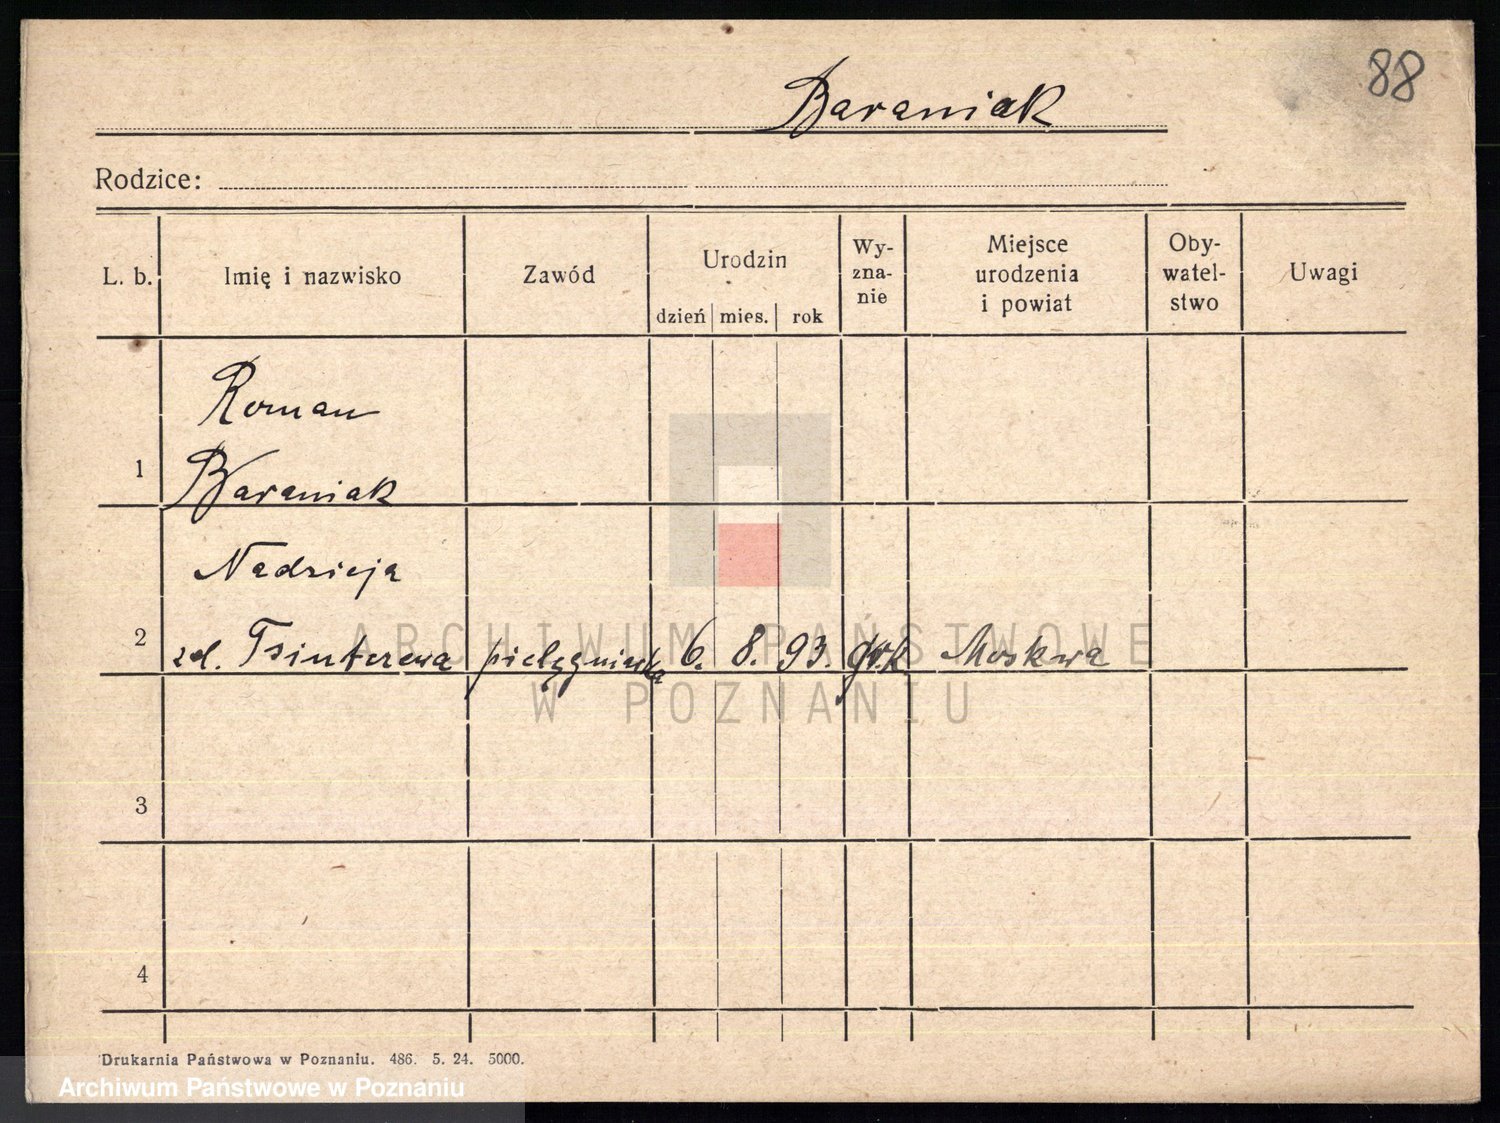 88
Baraniak
Rodzice:
L. b.
Imię i nazwisko
Zawód
Urodzin
dzień mies. rok
Wy-
zna-
nie
Miejsce
urodzenia
i powiat
Oby-
watel-
stwo
Uwagi
Roman
1 Baraniak
Nadzieja
2 zd. Tsinterewa pielęgniarka 6. 8. 93. Moskwa
3
4
ARCHIWUM PAŃSTWOWE
W POZNANIU
Drukarnia Państwowa w Poznaniu. 486. 5. 24. 5000.
Archiwum Państwowe w Poznaniu